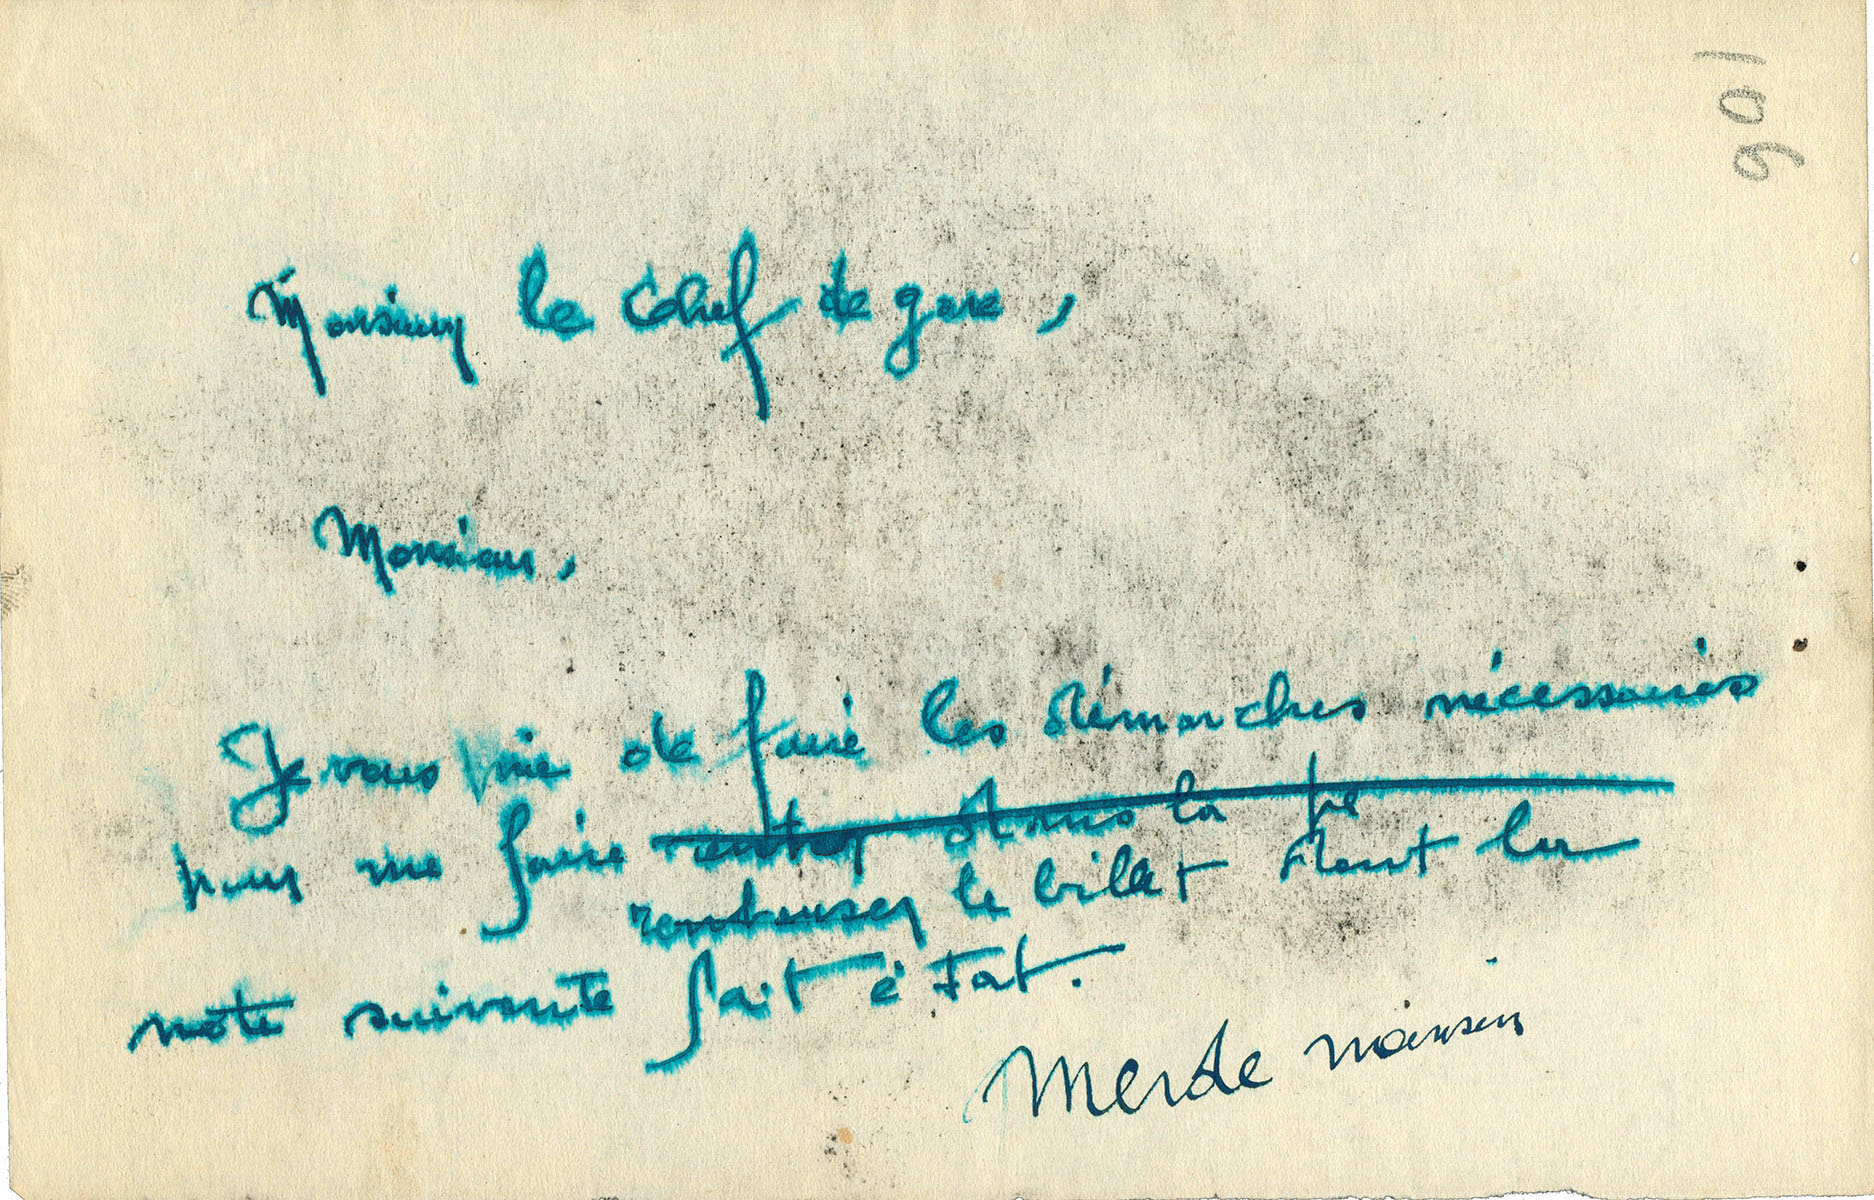 901
Monsieur le Chef de gare,
Monsieur,
Je vous prie de faire les démarches nécessaires
pour me faire entrer dans la pe
rembourser le billet dont la
note suivante fait état.
Merde